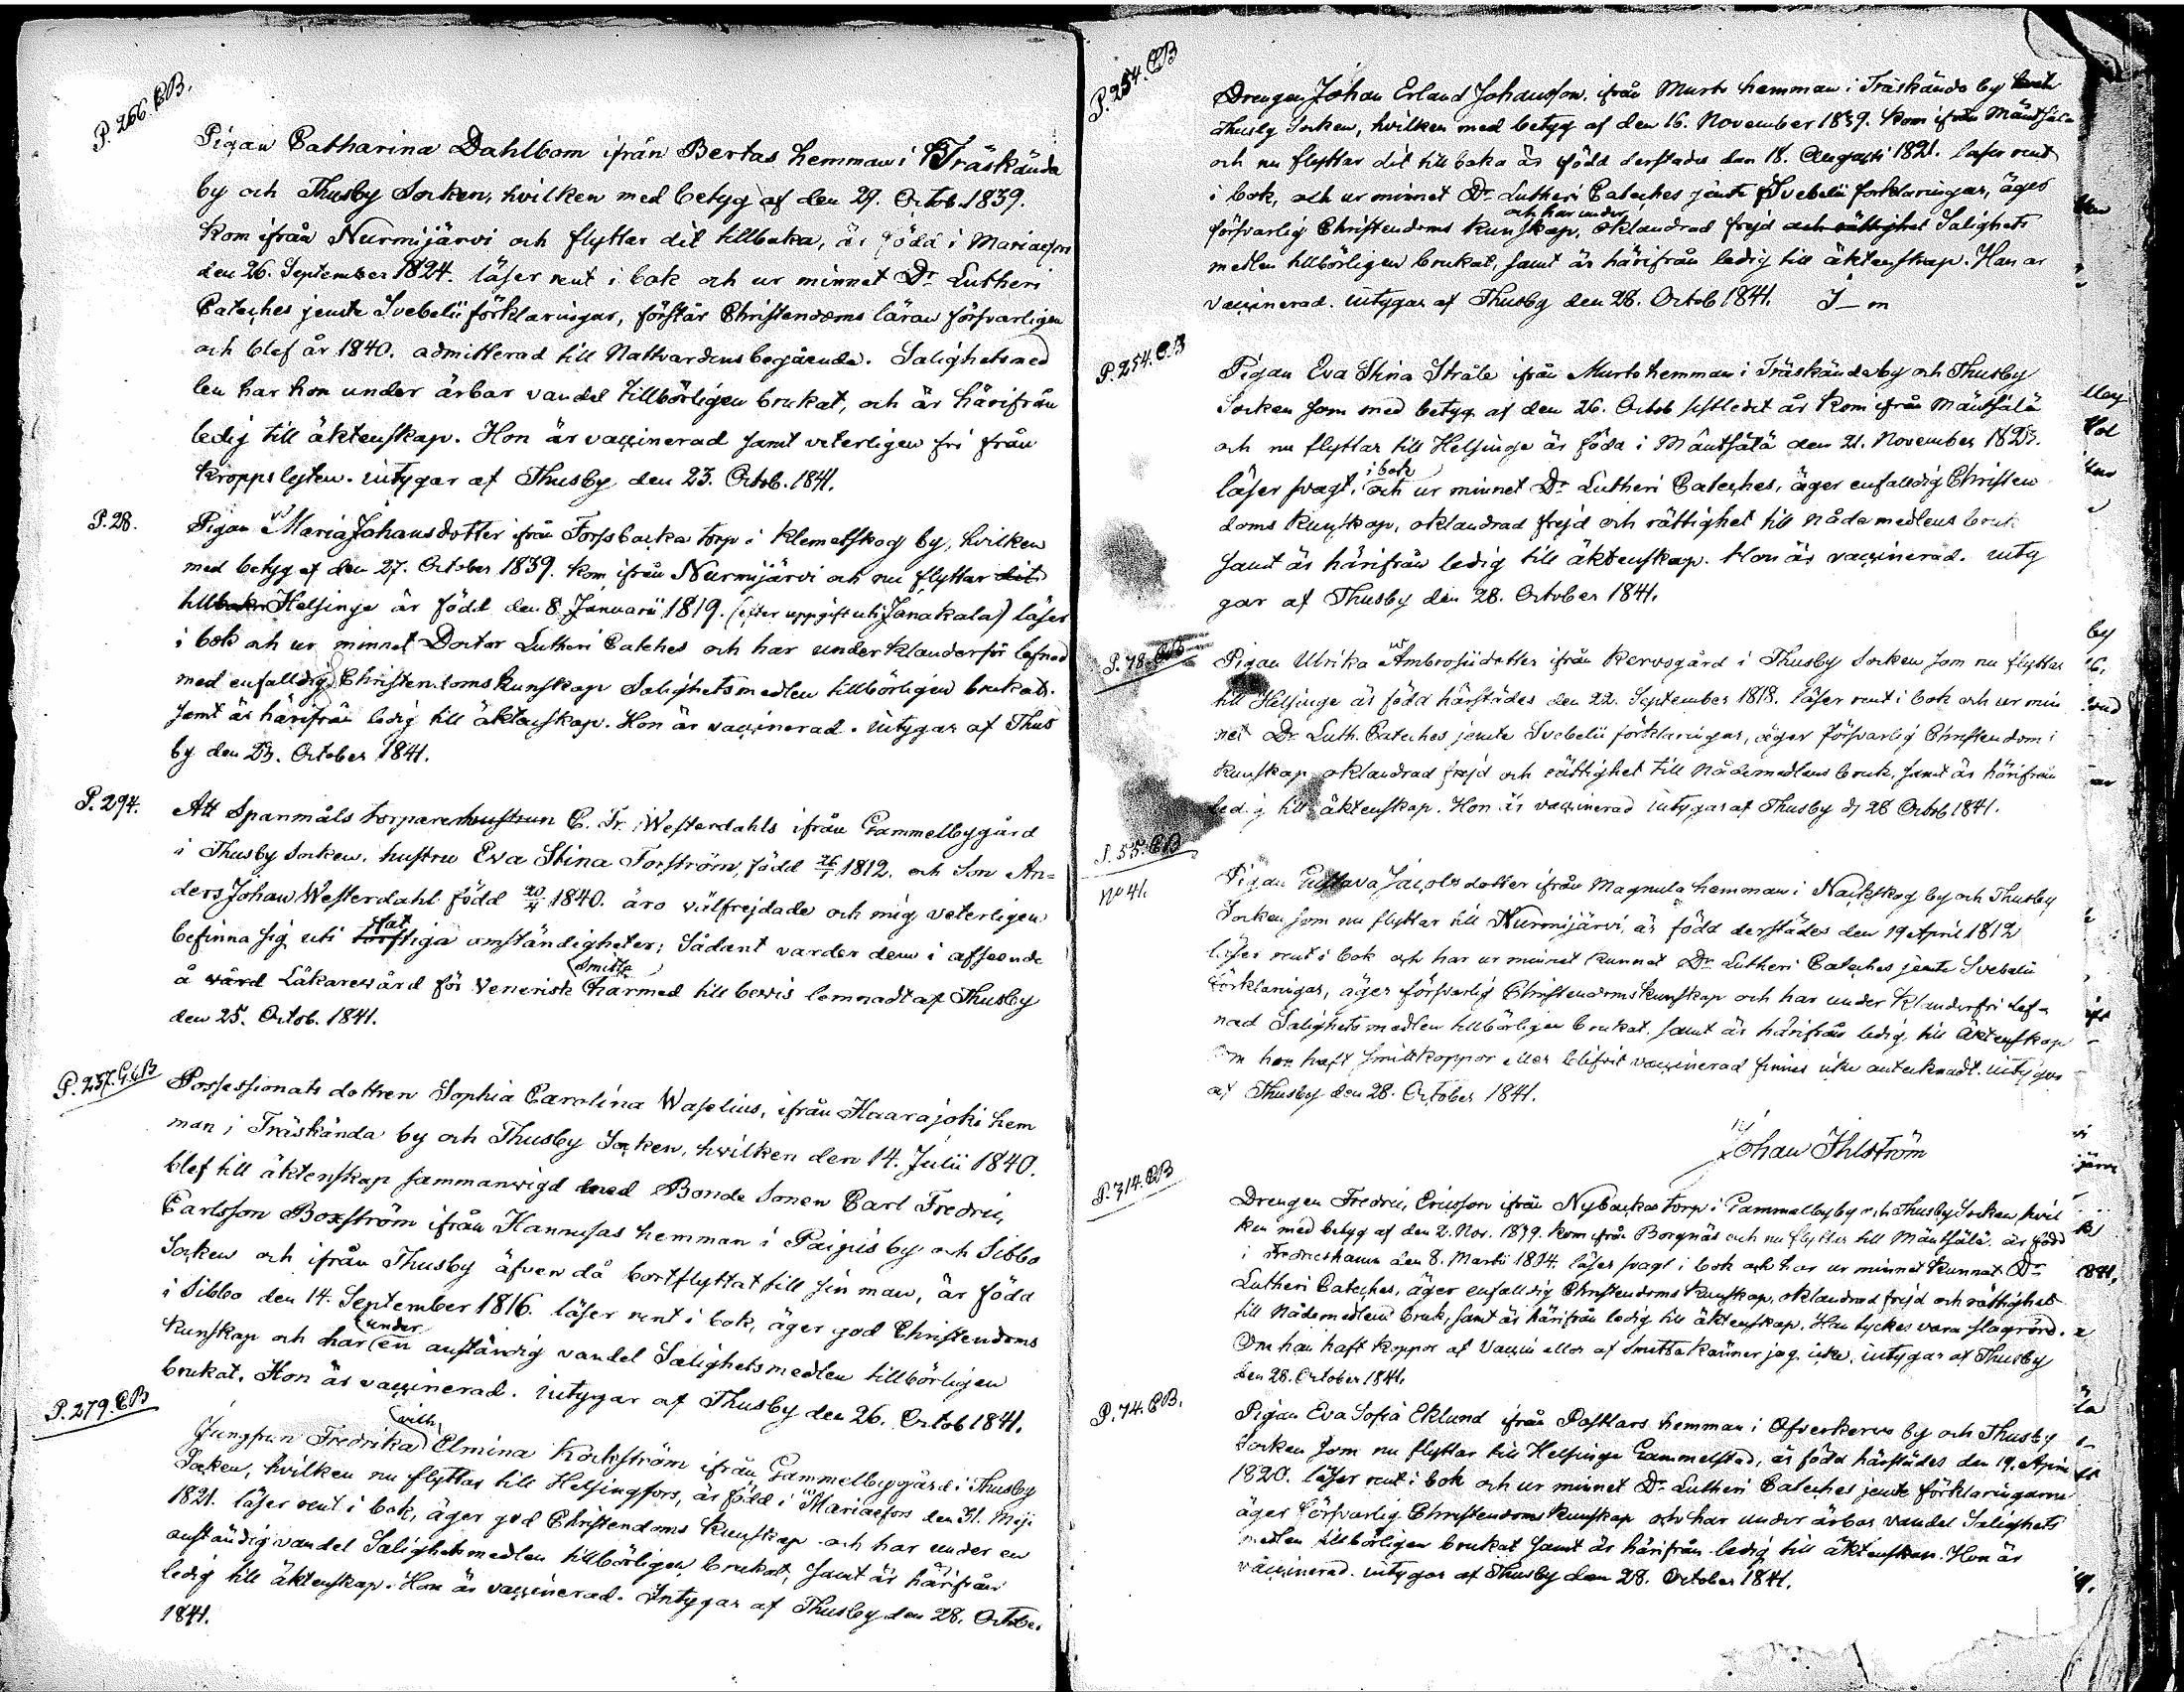 P. 266. CB.
Pigan Catharina Dahlbom ifrån Bertas hemman i Träskända
by och Thusby Socken, hvilken med betyg af den 29. Octob. 1839.
kom ifrån Nurmijärvi och flyttar dit tillbaka, är född i Mariaefors
den 26. September 1824. läser rent i bok och ur minnet Dr Lutheri
Cateches jemte Svebelii förklaringar, förstår Christendoms läran försvarligen
och blef år 1840. admitterad till Nattvardens begående. Salighetsmed
len har hon under ärbar vandel tillbörligen brukat, och är härifrån
ledig till äktenskap. Hon är vaccinerad samt veterligen fri från
kroppslyten. intygar af Thusby den 23. Octob. 1841.
P. 28.
Pigan Maria Johansdotter ifrån Forssbacka torp i Klemetskog by, hvilken
med betyg af den 27. October 1839. kom ifrån Nurmijärvi och nu flyttar dit
tillbaka Helsinge är född den 8. Januarii 1819. (efter uppgift uti Janakala) läser
i bok och ur minnet Doctor Lutheri Cateches och har under klanderfri lefnad
med enfalldig Christendoms kunskap Salighetsmedlen tillbörligen brukat.
samt är härifrån ledig till äktenskap. Hon är vaccinerad. intygar af Thus
by den 23. October 1841.
P. 294.
Att Spanmåls torparen hustrun C. Fr. Westerdahls ifrån Gammelbygård
i Thusby Socken, hustru Eva Stina Forström, född 26/1 1812. och Son An=
ders Johan Westerdahl född 20/4 1840. äro välfrejdade och mig veterligen
befinna sig uti fat torftiga omständigheter; Sådant varder dem i afseende
å vård Läkarevård för Venerisk Smitta härmed till bewis lemnadt af Thusby
den 25. Octob. 1841.
P. 257. G.CB
Possessionats dottren Sophia Carolina Waselius, ifrån Haarajoki hem
man i Träskända by och Thusby Socken, hvilken den 14. Julii 1840.
blef till äktenskap sammanwigd med Bonde Sonen Carl Fredric
Carlsson Boxström ifrån Hannusas hemman i Paipis by och Sibbo
Socken och ifrån Thusby äfven då bortflyttat till sin man, är född
i Sibbo den 14. September 1816. läser rent i bok, äger god Christendoms
kunskap och har under en anständig vandel Salighetsmedlen tillbörligen
brukat. Hon är vaccinerad. intygar af Thusby den 26. Octob 1841.
P. 279. CB
Jungfrun Fredrika Wilh. Elmina Kockström ifrån Gammelbygård i Thusby
Socken, hvilken nu flyttar till Helsingfors, är född i Mariaefors den 31. Maji
1821. läser rent i bok, äger god Christendoms kunskap och har under en
anständig vandel Salighetsmedlen tillbörligen brukat, samt är härifrån
ledig till äktenskap. Hon är vaccinerad. Intygar af Thusby den 28. October
1841.
P. 254. CB
Drengen Johan Erland Johansson, ifrån Murto hemman i Träskända by
Thusby Socken, hvilken med betyg af den 16. November 1839. kom ifrån Mäntsälä
och nu flyttar dit tillbaka är född derstades den 18. Augusti 1821. läser rent
i bok, och ur minnet Dr Lutheri Cateches jemte Svebelii förklaringar, äger
försvarlig Christendoms kunskap, och har under oklandrad frejd och rättighet Salighets
medlen tillbörligen brukat, samt är härifrån ledig till äktenskap. Han är
vaccinerad. intygar af Thusby den 28. Octob 1841. I_m
P. 254. CB
Pigan Eva Stina Stråle ifrån Murto hemman i Träskända by och Thusby
Socken som med betyg af den 26. Octob sistledit år kom ifrån Mäntsälä
och nu flyttar till Helsinge är född i Mäntsälä den 21. November 1823.
läser svagt i bok och ur minnet Dr Lutheri Cateches, äger enfalldig Christen
doms kunskap, oklandrad frejd och rättighet till nådemedlens bruk
samt är härifrån ledig till äktenskap. Hon är vaccinerad. inty
gar af Thusby den 28. October 1841.
P. 78. CB
Pigan Ulrika Ambrosiidotter ifrån Kervogård i Thusby Socken som nu flyttar
till Helsinge är född härstädes den 22. September 1818. läser rent i bok och ur min
net Dr Luth. Cateches jemte Svebelii förklaringar, äger försvarlig Christendoms
kunskap oklandrad frejd och rättighet till Nådemedlens bruk, samt är härifrån
ledig till äktenskap. Hon är vaccinerad intygar af Thusby d 28 Octob 1841.
P. 55. CB
No 41.
Pigan Gustava Jacobsdotter ifrån Magnula hemman i Nackskog by och Thusby
Socken som nu flyttar till Nurmijärvi, är född derstädes den 19 April 1812
läser rent i bok och har ur minnet kunnat Dr Lutheri Cateches jemte Svebelii
förklaringar, äger försvarlig Christendomskunskap och har under klanderfri lef=
nad Salighetsmedlen tillbörligen brukat, samt är härifrån ledig till Äktenskap
Om hon haft smittkoppor eller blifvit vaccinerad finnes icke antecknadt. intygar
af Thusby den 28. October 1841.
Johan Ihlström
P. 314. CB
Drengen Fredric Ericsson ifrån Nybackas torp i Gammelby by och Thusby Socken, hvil
ken med betyg af den 2. Nov. 1839. kom ifrån Borgnäs och nu flyttar till Mäntsälä. är född
i Fredricshamn den 8. Martii 1814. läser svagt i bok och har ur minnet kunnat Dr
Lutheri Cateches, äger enfalldig Christendoms kunskap, oklandrad frejd och rättighet
till Nådemedlens bruk, samt är härifrån ledig till äktenskap. Han tyckes vara slagrörd.
Om han haft koppor af Vaccin eller af Smitta känner jag icke, intygar af Thusby
den 28. October 1841.
P. 74. CB.
Pigan Eva Sofia Eklund ifrån Postlars hemman i Ofverkervo by och Thusby
Socken som nu flyttar till Helsinge Gammelstad, är född härstädes den 19. April
1820. läser rent i bok och ur minnet Dr Lutheri Cateches jemte förklaringarne
äger försvarlig Christendoms kunskap och har under ärbar vandel Salighets
medlen tillbörligen brukat samt är härifrån ledig till äktenskap. Hon är
vaccinerad. intygar af Thusby den 28. October 1841.